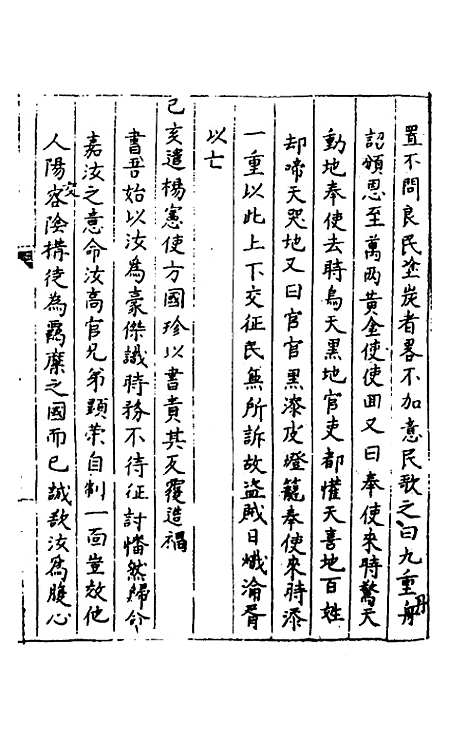 置不問良民塗炭者畧不加意民歌之曰九重丹
詔頒恩至萬两黃金使使囬又曰奉使來時驚天
動地奉使去時烏天黑地官吏都懽天喜地百姓
却啼天哭地又曰官官黑漆皮燈籠奉使來時添
一重以此上下交征民無所訴故盜賊日熾淪胥
以亡
己亥遣楊憲使方國珍以書責其反覆造禍
書吾始以汝為豪傑識時務不待征討惛然歸命
嘉汝之意命汝高官兄弟顕荣自制一面豈效他
人陽窓陰構徒為羁縻之國而已誠欲汝為腹心